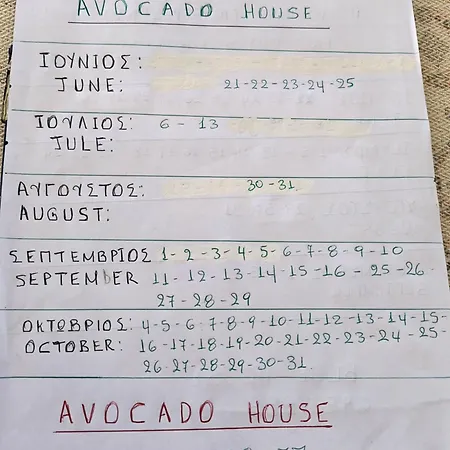 AVOCADO HOUSE
ΙΟΥΝΙΟΣ:
JUNE: 21-22-23-24-25
ΙΟΥΛΙΟΣ: 6 - 13
JULE:
ΑΥΓΟΥΣΤΟΣ: 30-31
AUGUST:
ΣΕΠΤΕΜΒΡΙΟΣ 1-2-3-4-5-6-7-8-9-10
SEPTEMBER 11-12-13-14-15-16-25-26-
27-28-29
ΟΚΤΩΒΡΙΟΣ: 4-5-6-7-8-9-10-11-12-13-14-15-
OCTOBER: 16-17-18-19-20-21-22-23-24-25-
26-27-28-29-30-31.
AVOCADO HOUSE